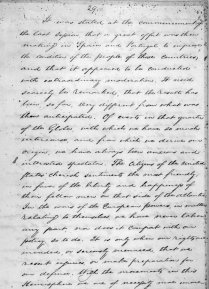 29
It was stated at the commencement of
the last session that a great effort was then
making in Spain and Portugal to improve
the condition of the people of those Countries
and that it appeared to be conducted
with extraordinary moderation. It need
scarcely be remarked, that the result has
been so far, very different from what was
then anticipated. Of events in that quarter
of the Globe with which we have so much
intercourse and from which we derive our
origin, we have always been anxious and
interested spectators. The Citizens of the United
States cherish sentiments the most friendly
in favor of the liberty and happiness of
their fellow men on that side of the Atlantic.
In the wars of the European powers in matters
relating to themselves we have never taken
any part, nor does it comport with our
policy, so to do. It is only when our rights are
invaded, or seriously menaced that we
resent injuries, or make preparation for
our defence. With the movements in this
Hemisphere we are of necessity more